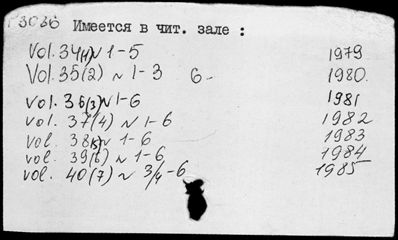 P3036 Имеется в чит. зале :
Vol. 34(1) N 1-5 1979
Vol. 35(2) N 1-3 6- 1980.
vol. 36(3) N 1-6 1981
vol. 37(4) N 1-6 1982
vol. 38(5) N 1-6 1983
vol. 39(6) N 1-6 1984
vol. 40(7) N 3/4-6 1985